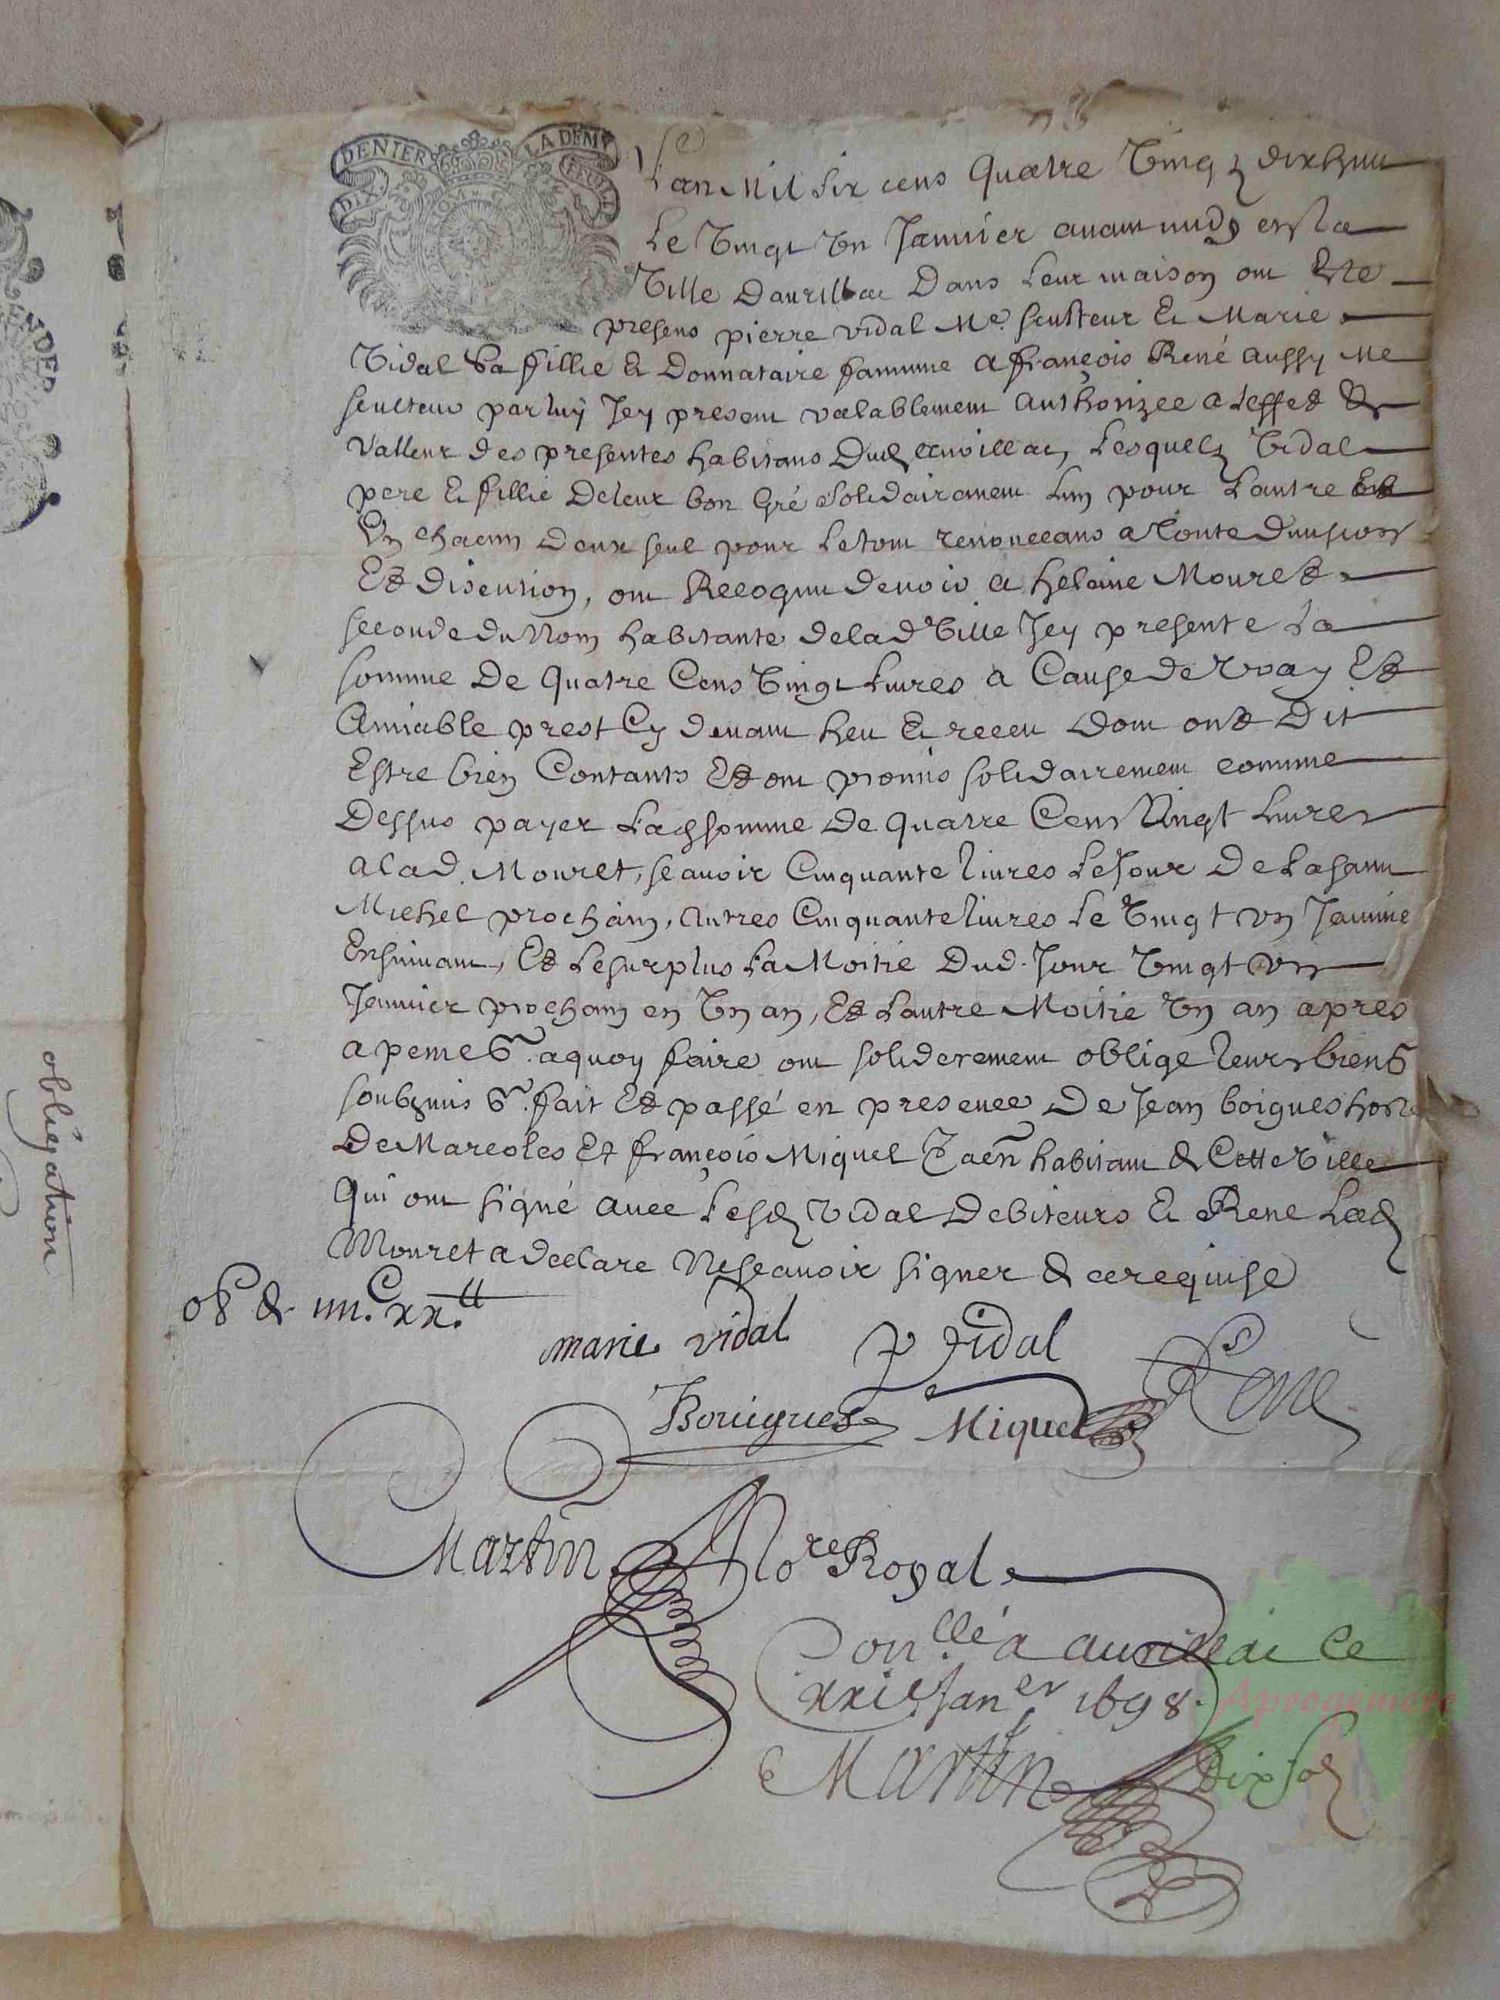 DIX DENIERS LA DEMY FEUILLE
Lan Mil six cens Quatre Vingt dixhuit
Le Vingt Un Janvier avant midy en la
Ville Daurillac Dans Leur maison ont Este
presens pierre vidal Me sculteur Et Marie
Vidal Sa fillie Et Donnataire famme a françois René aussy Me
sculteur par luy Jcy present valablement authorizée a leffet Et
Valleur des presentes habitans Dud aurillac, Lesquelz Vidal
pere Et fillie De leur bon Gré solidairement Lun pour Lautre Et
Un chacun Deux seul pour Letout renoncans a toute Division
Et discution, ont Recognu devoir a helaine Mouret
seconde du Nom habitante de lad Ville Jcy presente La
somme De Quatre Cens Vingt Livres a Cause de Vray Et
Amiable prest Cy devant heu Et receu Dont ont Dit
Estre bien Contants Et ont promis solidairement comme
Dessus payer Lad somme De quatre Cens Vingt Livres
a lad. Mouret, scavoir Cinquante livres Le Jour De La saint
Michel prochain, autres Cinquante livres Le Vingt un Janvier
Ensuivant, Et Le surplus La Moitié Dud. Jour Vingt un
Janvier prochain en Un an, Et Lautre Moitié Un an apres
a peine &. a quoy faire ont soliderement obligé leurs biens
soubzmis &. fait Et passé en presence De Jean boigues hoste
De Marcoles Et françois Miquel habitant de Cette Ville
Qui ont signé avec Lesd Vidal Debiteurs Et René Lad
Mouret a declaré Ne scavoir signer de ce requise
ob de iiii.C xx.ll
marie vidal P vidal
René
Bouigues Miquel
Martin No.re Royal
Con.llé a aurillac Ce
xxie Jan.er 1698.
Martin Dix sol
obligation
Aprogemere